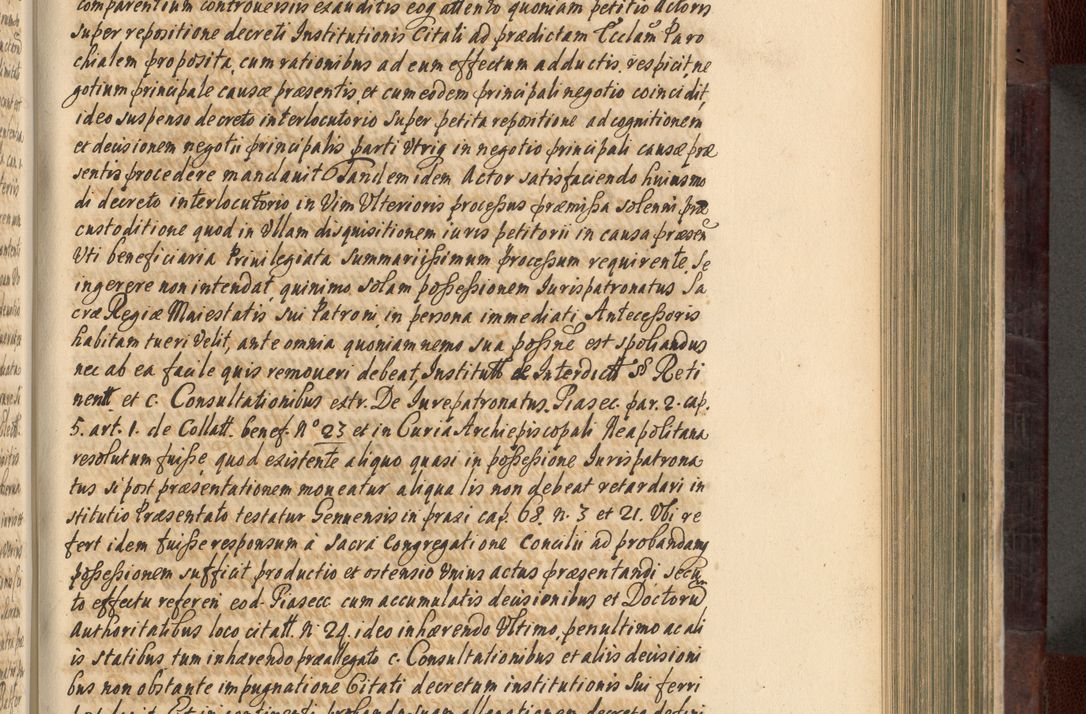 comparentium controversiis exauditis eoq attento quoniam petitio Actoris
super repositione decreti Institutionis Citati ad prædictam Ecclam Paro
chialem proposita, cum rationibus ad eum effectum adductis, respicit, ne
gotium principale causæ præsentis, et cum eodem principali negotio coincidit,
ideo suspenso decreto interlocutorio super petita repositione ad cognitionem
et decisionem negotii principalis parti Utriq in negotio principali causæ præ
sentis procedere mandauit Tandem idem Actor satisfaciendo huiusmo
di decreto interlocutorio in Vim Ulterioris processus præmissa solenni præ
custoditione quod in Ullam disquisitionem iuris petitorii in causa præsen
Uti beneficiaria Priuilegiata summariissimum processum requirente, se
ingerere non intendat, quinimo solam possessionem Iurispatronatus Sa
cræ Regiæ Maiestatis sui Patroni, in persona immediati Antecessoris
habitam tueri Velit, ante omnia quoniam nemo sua possne est spoliandus
nec ab ea facile quis remoueri debeat, Institutt de Interdictt § Reti
nentt et c. Consultationibus extr. De Iurepatronatus. Piasec. par. 2. cap.
5. art. 1. de Collatt. benef. N° 23 et in Curia Archiepiscopali Neapolitana
resolutum fuisse, quod existente aliquo quasi in possessione Iurispatrona
tus si post præsentationem moueatur aliqua lis non debeat retardari in
stitutio Præsentato testatur Genuensis in praxi cap. 68. n. 3 et 21. Ubi re
fert idem fuisse responsum à Sacra Congregatione Concilii ad probandam
possessionem sufficit productio et ostensio Unius actus præsentandi secu
to effectu referen eod. Piasecc cum accumulatis decisionibus et Doctorum
Authoritatibus loco citatt. N. 24. ideo inhærendo Ultimo, penultimo ac ali
is statibus tum inhærendo præallegato c. Consultationibus et aliis decisioni
bus non obstante impugnatione Citati decretum institutionis sui ferri